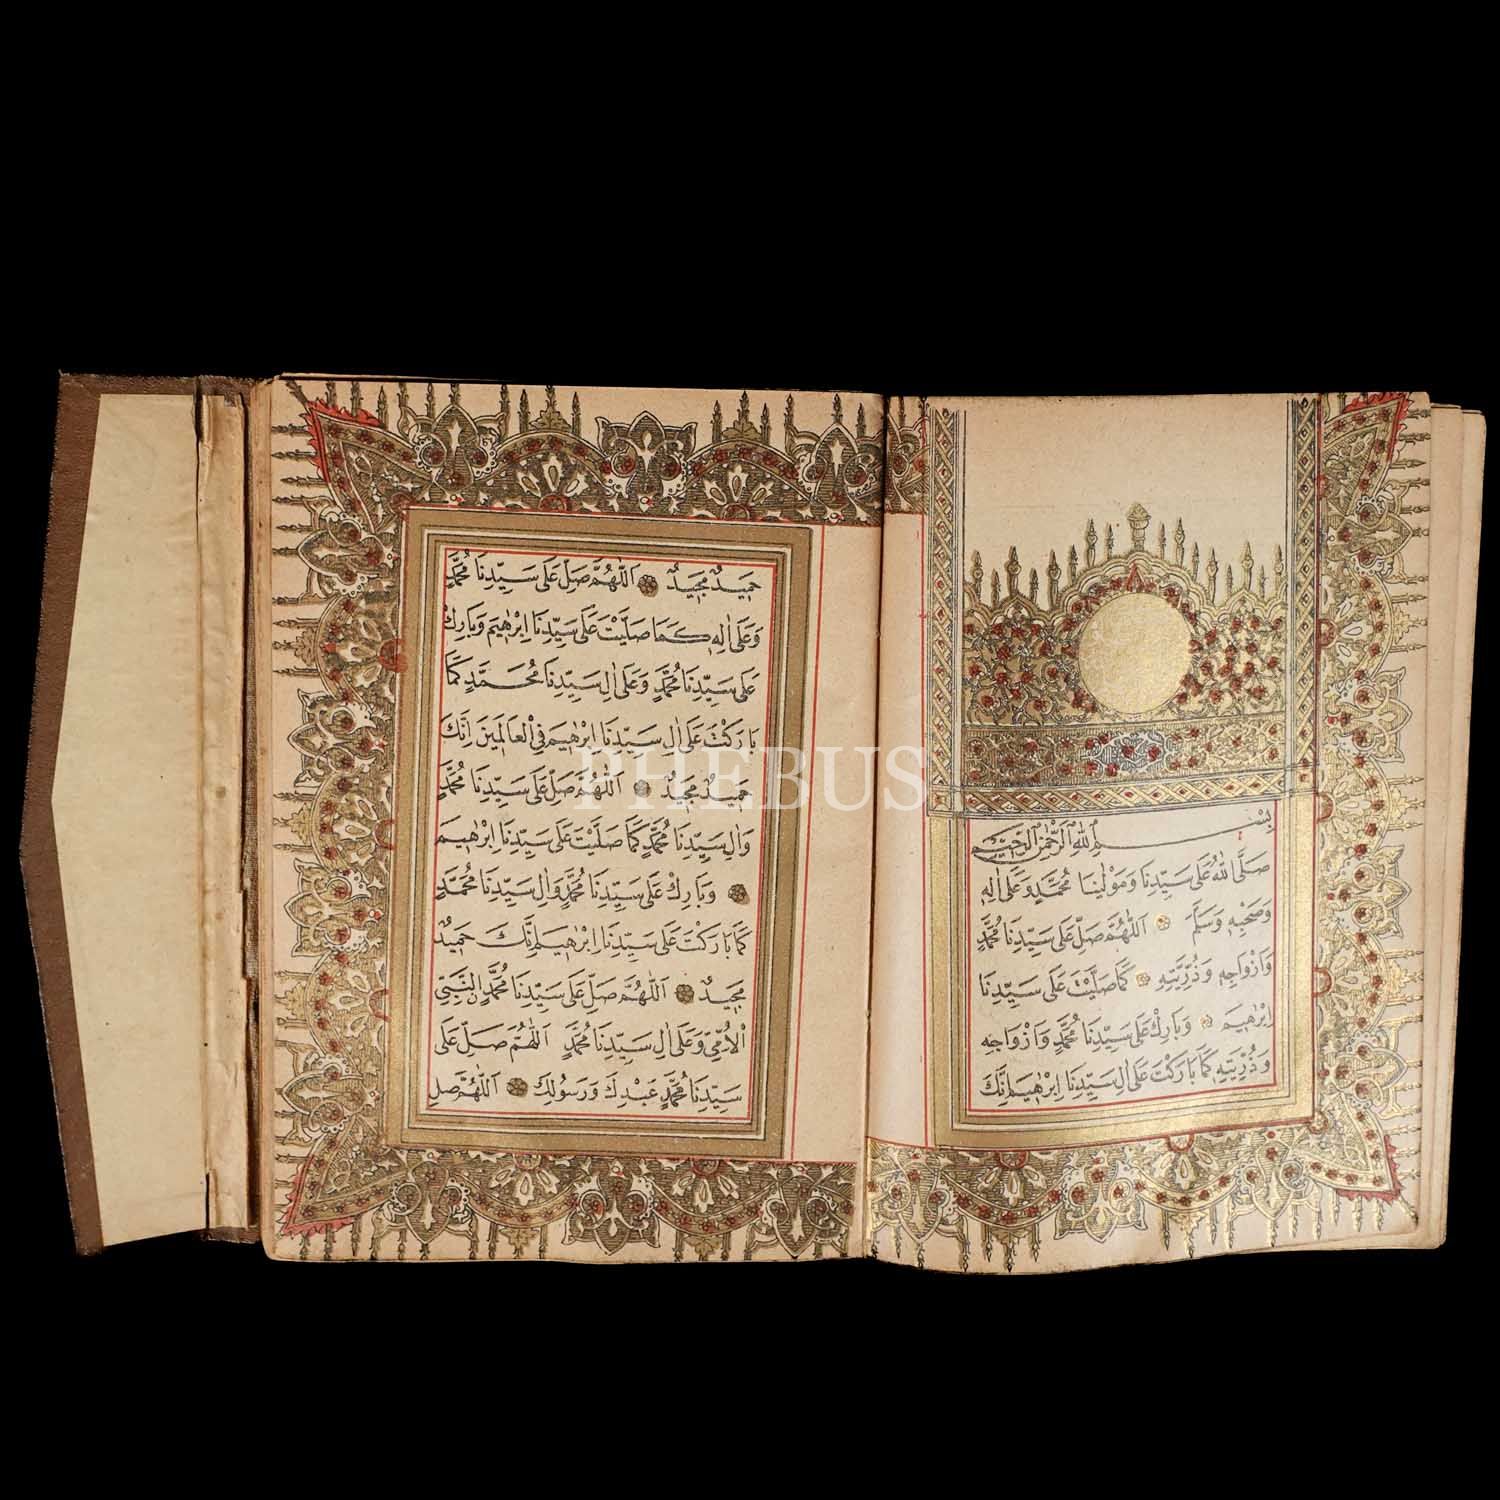 بِسْمِ اللّٰهِ الرَّحْمٰنِ الرَّحِيمِ
صَلَّى اللّٰهُ عَلٰى سَيِّدِنَا وَمَوْلٰينَا مُحَمَّدٍ وَعَلٰى اٰلِهِ
وَصَحْبِهِ وَسَلَّمَ اَللّٰهُمَّ صَلِّ عَلٰى سَيِّدِنَا مُحَمَّدٍ
وَاَزْوَاجِهِ وَذُرِّيَّتِهِ كَمَا صَلَّيْتَ عَلٰى سَيِّدِنَا
اِبْرٰهِيمَ وَبَارِكْ عَلٰى سَيِّدِنَا مُحَمَّدٍ وَاَزْوَاجِهِ
وَذُرِّيَّتِهِ كَمَا بَارَكْتَ عَلٰى اٰلِ سَيِّدِنَا اِبْرٰهِيمَ اِنَّكَ
حَمِيدٌ مَجِيدٌ اَللّٰهُمَّ صَلِّ عَلٰى سَيِّدِنَا مُحَمَّدٍ
وَعَلٰى اٰلِهِ كَمَا صَلَّيْتَ عَلٰى سَيِّدِنَا اِبْرٰهِيمَ وَبَارِكْ
عَلٰى سَيِّدِنَا مُحَمَّدٍ وَعَلٰى اٰلِ سَيِّدِنَا مُحَمَّدٍ كَمَا
بَارَكْتَ عَلٰى اٰلِ سَيِّدِنَا اِبْرٰهِيمَ فِي الْعَالَمِينَ اِنَّكَ
حَمِيدٌ مَجِيدٌ اَللّٰهُمَّ صَلِّ عَلٰى سَيِّدِنَا مُحَمَّدٍ
وَاٰلِ سَيِّدِنَا مُحَمَّدٍ كَمَا صَلَّيْتَ عَلٰى سَيِّدِنَا اِبْرٰهِيمَ
وَبَارِكْ عَلٰى سَيِّدِنَا مُحَمَّدٍ وَاٰلِ سَيِّدِنَا مُحَمَّدٍ
كَمَا بَارَكْتَ عَلٰى سَيِّدِنَا اِبْرٰهِيمَ اِنَّكَ حَمِيدٌ
مَجِيدٌ اَللّٰهُمَّ صَلِّ عَلٰى سَيِّدِنَا مُحَمَّدٍ النَّبِيِّ
الْاُمِّيِّ وَعَلٰى اٰلِ سَيِّدِنَا مُحَمَّدٍ اَللّٰهُمَّ صَلِّ عَلٰى
سَيِّدِنَا مُحَمَّدٍ عَبْدِكَ وَرَسُولِكَ اَللّٰهُمَّ صَلِّ
PHEBUS